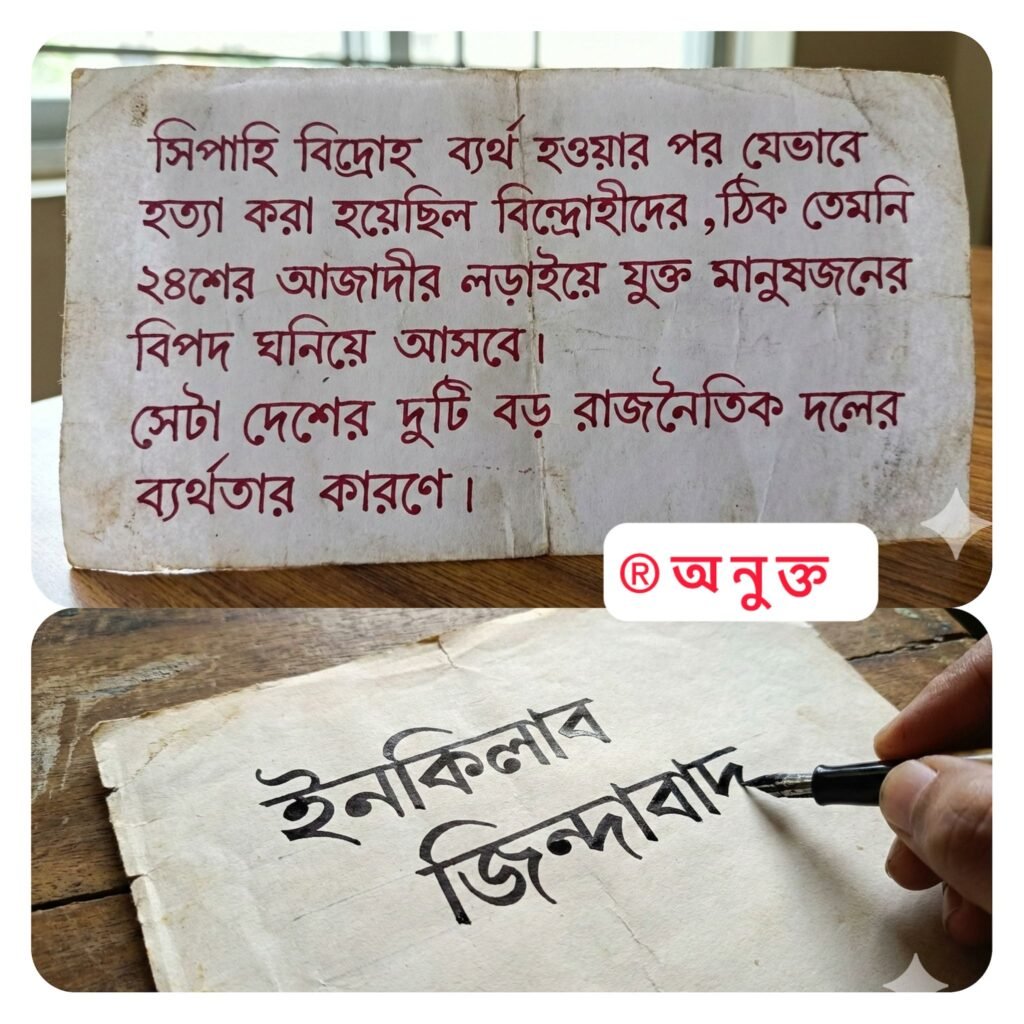 সিপাহি বিদ্রোহ ব্যর্থ হওয়ার পর যেভাবে
হত্যা করা হয়েছিল বিন্দ্রোহীদের ,ঠিক তেমনি
২৪শের আজাদীর লড়াইয়ে যুক্ত মানুষজনের
বিপদ ঘনিয়ে আসবে।
সেটা দেশের দুটি বড় রাজনৈতিক দলের
ব্যর্থতার কারণে।
® অনুক্ত
ইনকিলাব
জিন্দাবাদ